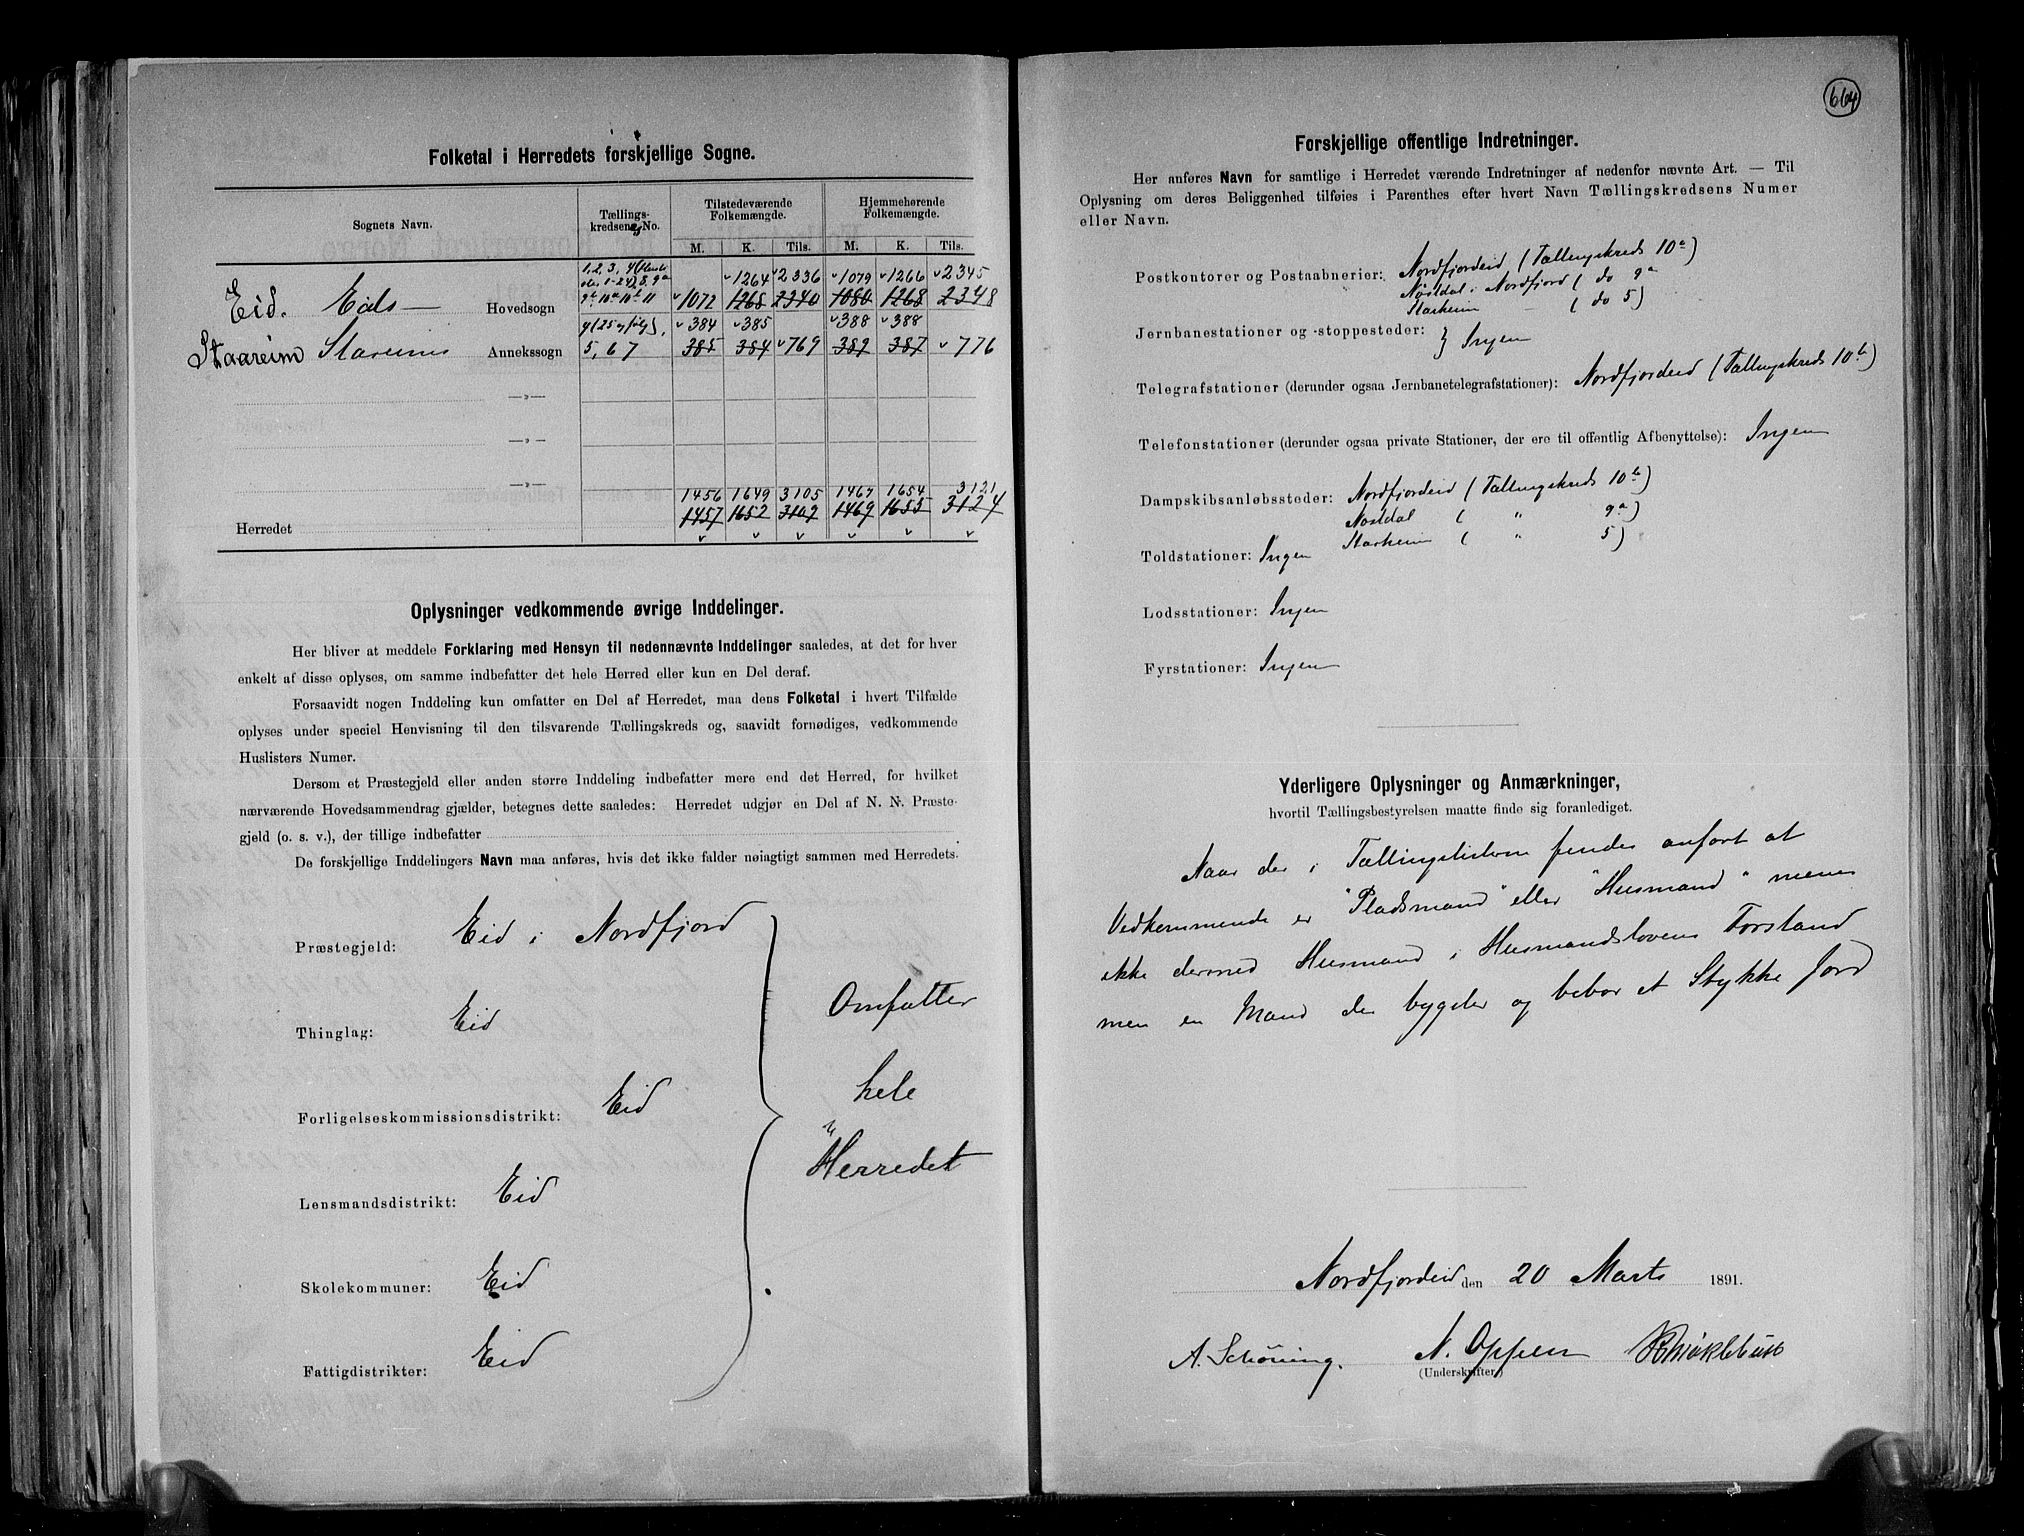 Folketal i Herredets forskjellige Sogne.
Sognets Navn.
Tællings-
kredsens No.
Tilstedeværende
Folkemængde.
Hjemmehørende
Folkemængde.
M. K. Tils. M. K. Tils.
Eid. Eids — Hovedsogn
1, 2, 3, 4
1-24), 8, 9a
9b, 10a 10b 11
1264 2336 1079 1266 2345
1072 1268 2340 1080 1268 2348
Staareim Stareims Annekssogn
4 (25 og følg),
5, 6 7
384 385 388 388
385 384 769 389 387 776
—„—
—„—
—„—
1456 1649 3105 1467 1654 3121
Herredet 1457 1652 3109 1469 1655 3124
Oplysninger vedkommende øvrige Inddelinger.
Her bliver at meddele Forklaring med Hensyn til nedennævnte Inddelinger saaledes, at det for hver
enkelt af disse oplyses, om samme indbefatter det hele Herred eller kun en Del deraf.
Forsaavidt nogen Inddeling kun omfatter en Del af Herredet, maa dens Folketal i hvert Tilfælde
oplyses under speciel Henvisning til den tilsvarende Tællingskreds og, saavidt fornødiges, vedkommende
Huslisters Numer.
Dersom et Præstegjeld eller anden større Inddeling indbefatter mere end det Herred, for hvilket
nærværende Hovedsammendrag gjælder, betegnes dette saaledes: Herredet udgjør en Del af N. N. Præste-
gjeld (o. s. v.), der tillige indbefatter
De forskjellige Inddelingers Navn maa anføres, hvis det ikke falder nøiagtigt sammen med Herredets.
Præstegjeld: Eid i Nordfjord
Thinglag: Eid
Forligelseskommissionsdistrikt: Eid
Lensmandsdistrikt: Eid
Skolekommuner: Eid
Fattigdistrikter: Eid
Omfatter
hele
Herredet
664
Forskjellige offentlige Indretninger.
Her anføres Navn for samtlige i Herredet værende Indretninger af nedenfor nævnte Art. — Til
Oplysning om deres Beliggenhed tilføies i Parenthes efter hvert Navn Tællingskredsens Numer
eller Navn.
Postkontorer og Postaabnerier: Nordfjordeid (Tællingskreds 10a)
Nøstdal i Nordfjord ( do 9a
Starheim — ( do 5)
Jernbanestationer og -stoppesteder: } Ingen
Telegrafstationer (derunder ogsaa Jernbanetelegrafstationer): Nordfjordeid (Tællingskreds 10b)
Telefonstationer (derunder ogsaa private Stationer, der ere til offentlig Afbenyttelse): Ingen
Dampskibsanløbssteder: Nordfjordeid (Tællingskreds 10b)
Nøstdal ( " 9a)
Starheim ( " 5)
Toldstationer: Ingen
Lodsstationer: Ingen
Fyrstationer: Ingen
Yderligere Oplysninger og Anmærkninger,
hvortil Tællingsbestyrelsen maatte finde sig foranlediget.
Naar der i Tællingslisterne findes anført at
Vedkommende er "Pladsmand" eller "Husmand" menes
ikke dermed Husmand i Husmandslovens Forstand
men en Mand der bygsler og bebor et Stykke Jord
Nordfjordeid den 20 Marts 1891.
A. Schøning. N. Oppen
(Underskrifter.)